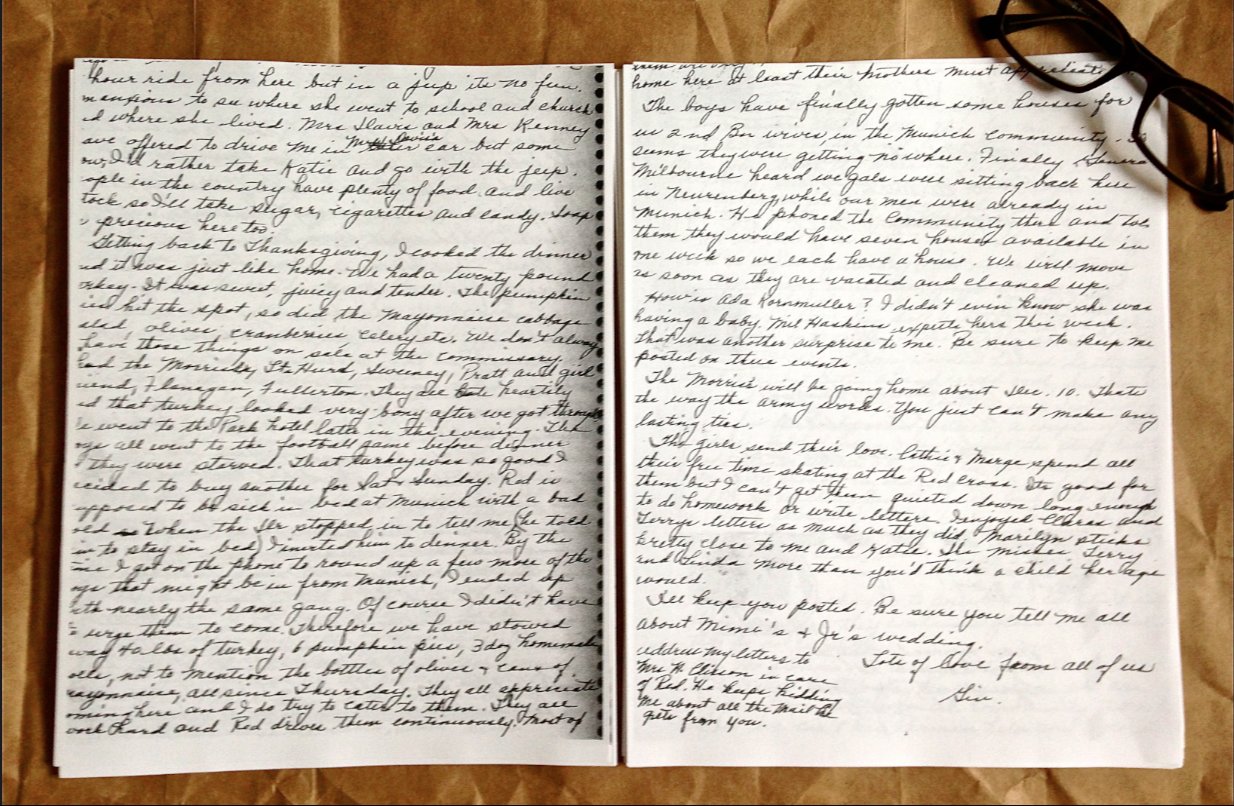 hour ride from here but in a jeep its no fun.
to see where she went to school and church
d where she lived. Mrs Davis and Mrs Kenney
Mrs Davis's
ave offered to drive me in car but some
ow I'd rather take Katie and go with the jeep.
ople in the country have plenty of food and live
tock so I'll take sugar, cigarettes and candy. Soap
precious here too.
Getting back to Thanksgiving, I cooked the dinner
nd it was just like home. We had a twenty pound
urkey. It was sweet, juicy and tender. The pumpkin
ies hit the spot, so did the mayonnaise cabbage
alad, olives, cranberries celery etc. We don't alway
have those things on sale at the commissary.
had the Lt. Hurd, Sweeney, Pratt and girl
riend, Flanagan, Fullerton. They all ate heartily
nd that turkey looked very bony after we got through
e went to the Park hotel later in the evening. The
oys all went to the football game before dinner
they were starved. That turkey was so good I
ecided to buy another for Sat & Sunday. Red is
upposed to be sick in bed at Munich with a bad
old When the Dr stopped in to tell me (he told
him to stay in bed) I invited him to dinner. By the
ime I got on the phone to round up a few more of the
oys that might be in from Munich, I ended up
ith nearly the same gang. Of course I didn't have
o urge them to come. Therefore we have stowed
way 40 lbs of turkey, 6 pumpkin pies, 3 doz homemade
olls, not to mention the bottles of olives & cans of
mayonnaise, all since Thursday. They all appreciate
oming here and I do try to cater to them. They all
work hard and Red drives them continuously. Most of
home here at least their Mothers must appreciate
The boys have finally gotten some houses for
us 2nd Bn wives, in the Munich community. It
seems they were getting nowhere. Finaley General
Milbourne heard we gals were sitting back here
in Neurenberg while our men were already in
Munich. He phoned the Community there and told
them they would have seven houses available in
one week so we each have a house. We will move
as soon as they are vacated and cleaned up.
How is Ada Kornmuller? I didn't even know she was
having a baby. Mel Haskins expects hers this week.
that was another surprise to me. Be sure to keep me
posted on these events.
The Morris's will be going home about Dec. 10. Thats
the way the army works. You just can't make any
lasting ties.
The girls send their love. Cattie & Marge spend all
their free time skating at the Red Cross. Its good for
them but I can't get them quieted down long enough
to do homework or write letters. I enjoyed Claras and
Terrys letters as much as they did. Marilyn sticks
pretty close to me and Katie. She misses Terry
and Linda more than you'd think a child her age
would.
I'll keep you posted. Be sure you tell me all
about Mimi's & Jr's wedding.
Lots of love from all of us
Gin.
address my letters to
Mrs H in care
of Red. He keeps kidding
me about all the mail he
gets from you.